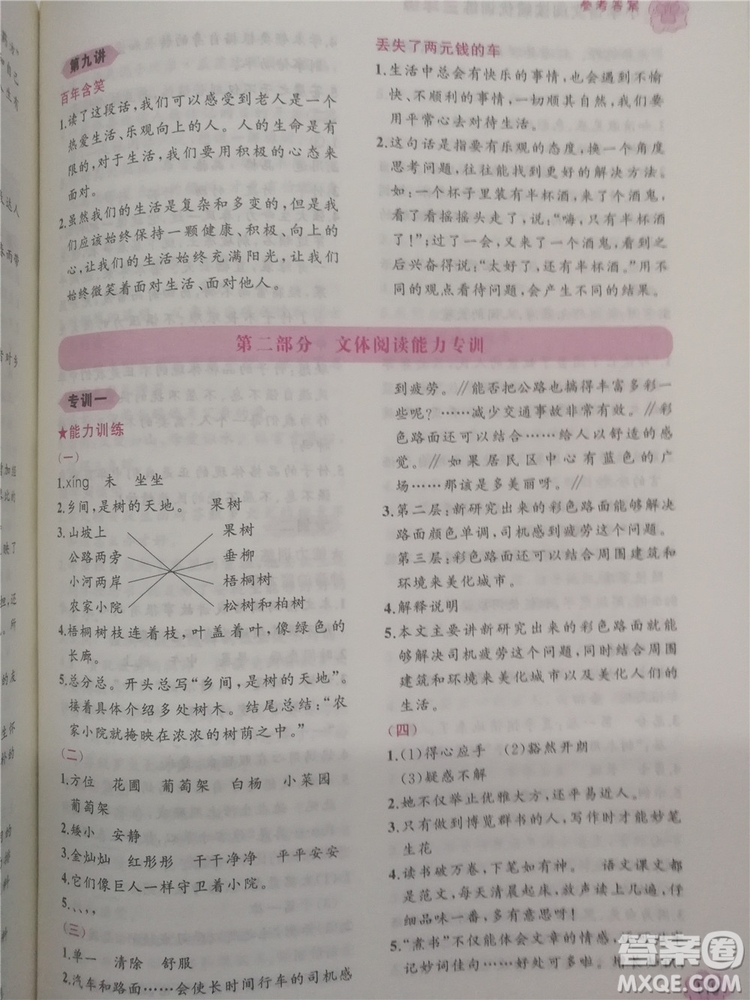 参考答案
第九讲
百年含笑
1.读了这段话,我们可以感受到老人是一个
热爱生活、乐观向上的人。人的生命是有
限的,对于生活,我们要用积极的心态来
面对。
2.虽然我们的生活是复杂和多变的,但是我
们应该始终保持一颗健康、积极、向上的
心,让我们的生活始终充满阳光,让我们
始终微笑着面对生活、面对他人。
丢失了两元钱的车
1.生活中总会有快乐的事情,也会遇到不愉
快、不顺利的事情,一切顺其自然,我们要
用平常心去对待生活。
2.这句话是指要有乐观的态度,换一个角度
思考问题,往往能找到更好的解决方法。
如:一个杯子里装有半杯酒,来了个酒鬼,
看了看摇摇头走了,说:“嗨,只有半杯酒
了!”;过了一会,又来了一个酒鬼,看到它
之后兴奋得说:“太好了,还有半杯酒。”用不
同的观点看待问题,会产生不同的结果。
第二部分 文体阅读能力专训
专训一
★能力训练
(一)
1.xīng 未 坐坐
2.乡间,是树的天地。 果树
3.山坡上 果树
公路两旁 垂柳
小河两岸 梧桐树
农家小院 松树和柏树
4.梧桐树枝连着枝,叶盖着叶,像绿色的
长廊。
5.总分总。开头总写“乡间,是树的天地”。
接着具体介绍多处树木。结尾总结:“农
家小院就掩映在浓浓的树荫之中。”
(二)
1.方位 花圃 葡萄架 白杨 小菜园
葡萄架
2.矮小 安静
3.金灿灿 红彤彤 干干净净 平平安安
4.它们像巨人一样守卫着小院。
5.、、,,
(三)
1.单一 清除 舒服
2.汽车和路面……长时间行车的司机感
到疲劳。∥能否把公路也搞得丰富多彩一
些呢?……减少交通事故非常有效。∥
彩色路面还……给人以舒适的感
觉。∥如果居民区中心有蓝色的广
场……那该有多美丽呀。∥
3.第二层:新研究出来的彩色路面能够解决
路面颜色单调,司机感到疲劳这个问题。
第三层:彩色路面还可以结合周围建筑和
环境来美化城市。
4.解释说明
5.本文主要讲新研究出来的彩色路面能够
解决司机疲劳这个问题,同时结合周围
建筑和环境来美化城市以及美化人们的
生活。
(四)
1.(1)得心应手 (2)豁然开朗
(3)疑惑不解
2.她不仅举止优雅大方,还平易近人。
3.只有成为博览群书的人,写作时才能妙笔
生花
4.读书破万卷,下笔如有神。 语文课文都
是范文,每天清晨起床,放声读上几遍,仔
细品味一番,多有意思呀!
5.“煮书”不仅能体会文章的情感,还能牢
记妙词佳句……好处可多啦!
答案圈